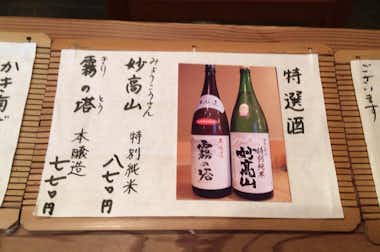 ございます
特選酒
みょうこうさん
妙高山 特別純米
八七〇円
きり とう
霧の塔 本醸造
七七〇円
霧の塔
特別純米
妙高山